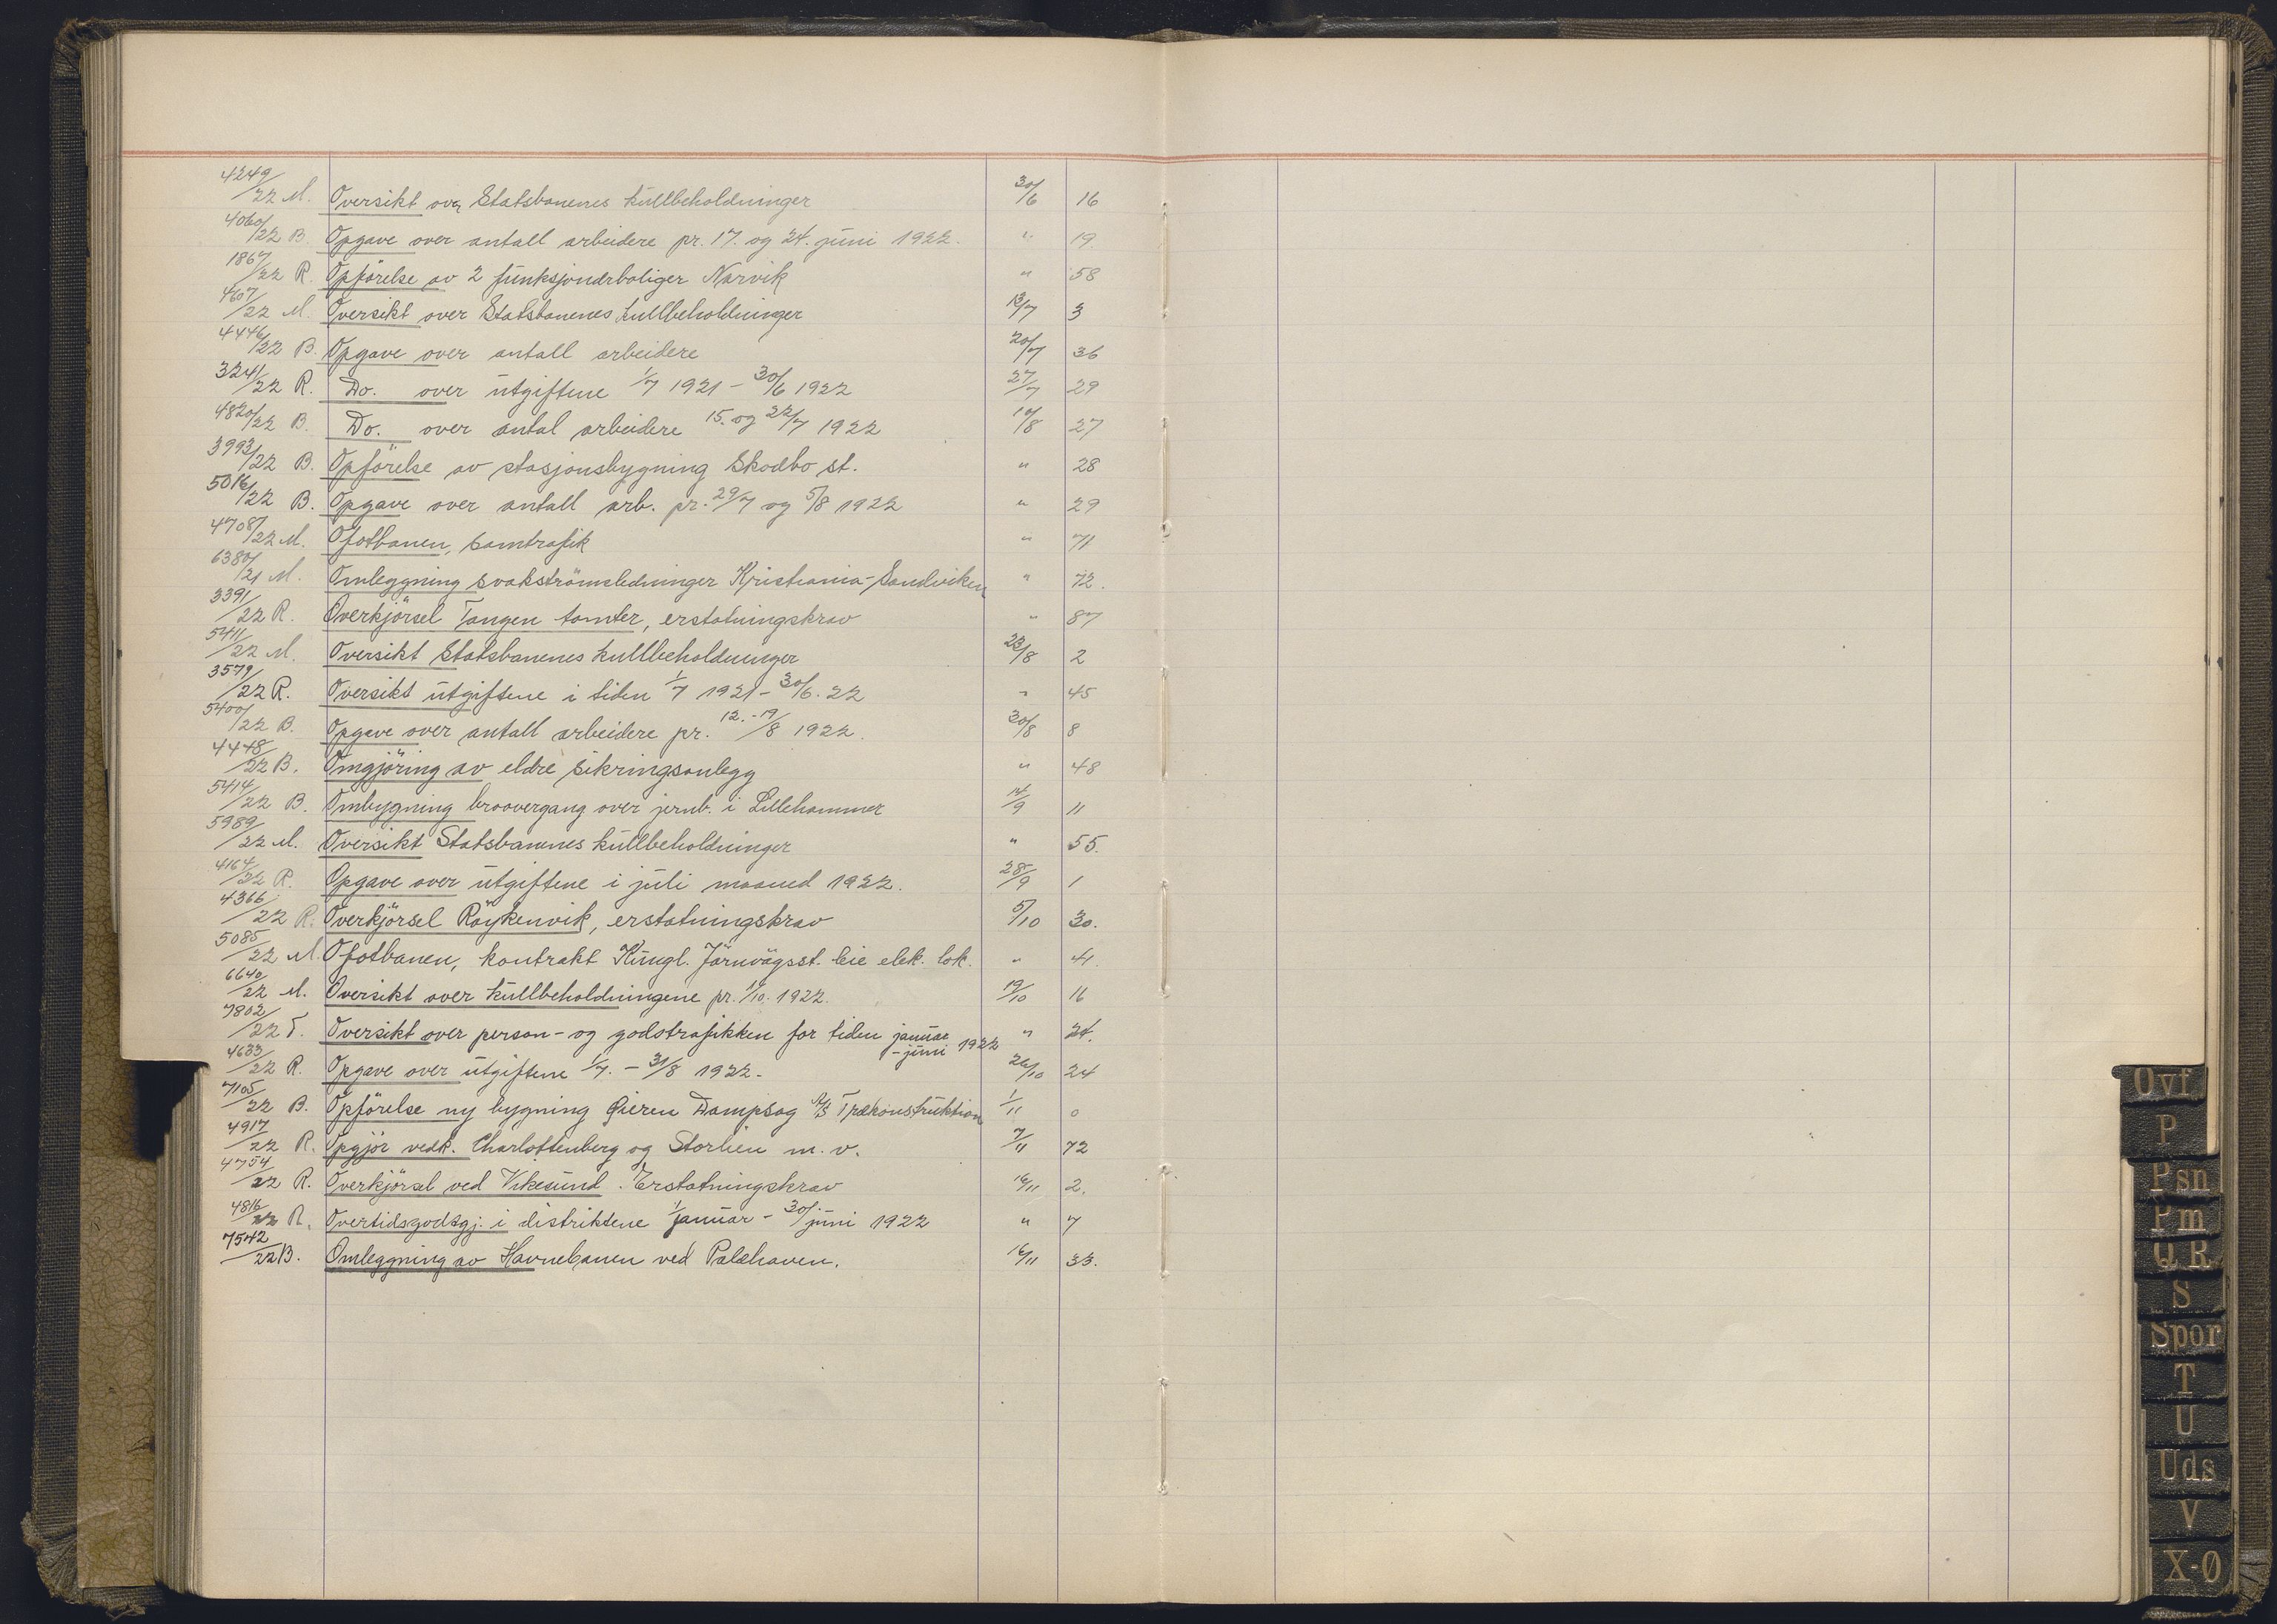 4249/22 M. Oversikt over Statsbanenes kullbeholdninger 30/6 16
4060/22 B. Opgave over antall arbeidere pr. 17. og 24. juni 1922. " 19.
1867/22 R. Opförelse av 2 funksjonærboliger Narvik " 58
4607/22 M. Oversikt over Statsbanenes kullbeholdninger 13/7 3
4446/22 B. Opgave over antall arbeidere 20/7 36
3241/22 R. Do. over utgiftene 1/7 1921 - 30/6 1922 27/7 29
4820/22 B. Do. over antal arbeidere 15. og 22/7 1922 10/8 27
3993/22 B. Opförelse av stasjonsbygning Skodbo st. " 28
5016/22 B. Opgave over antall arb. pr. 29/7 og 5/8 1922 " 29
4708/22 M. Ofotbanen, samtrafik " 71
6380/21 M. Omleggning svakströmsledninger Kristiania-Sandviken " 72.
3391/22 R. Overkjörsel Tangen tomter, erstatningskrav " 87
5411/22 M. Oversikt Statsbanenes kullbeholdninger 23/8 2
3579/22 R. Oversikt utgiftene i tiden 1/7 1921 - 30/6. 22 " 45
5400/22 B. Opgave over antall arbeidere pr. 12. - 19/8 1922. 30/8 8
4448/22 B. Omgjöring av eldre sikringsanlegg " 48
5414/22 B. Ombygning broovergang over jernb. i Lillehammer 14/9 11
5989/22 M. Oversikt Statsbanenes kullbeholdninger " 55.
4164/22 R. Opgave over utgiftene i juli maaned 1922. 28/9 1
4366/22 R. Overkjörsel Röykenvik, erstatningskrav 5/10 30.
5085/22 M. Ofotbanen, kontrakt Kungl. Järnvägsst. leie elek. lok. " 41.
6640/22 M. Oversikt over kullbeholdningene pr. 1/10. 1922. 19/10 16
7802/22 T. Oversikt over person- og godstrafikken for tiden januar - juni 1922 " 24.
4633/22 R. Opgave over utgiftene 1/7. - 31/8 1922. 26/10 24
7105/22 B. Opförelse ny bygning Øieren Dampsag A/S Trækonstruktion 1/11 0
4917/22 R. Opgjör vedk. Charlottenberg og Storlien m. v. 7/11 72
4754/22 R. Overkjörsel ved Vikesund. Erstatningskrav 16/11 2.
4816/22 R. Overtidsgodtgj. i distriktene 1/januar - 30/juni 1922 " 7
7542/22 B. Omleggning av Havnebanen ved Palæhaven. 16/11 33.
Ovf
P
Psn
Pm
Q R
S
Spor
T
U
Uds
V
X-Ø